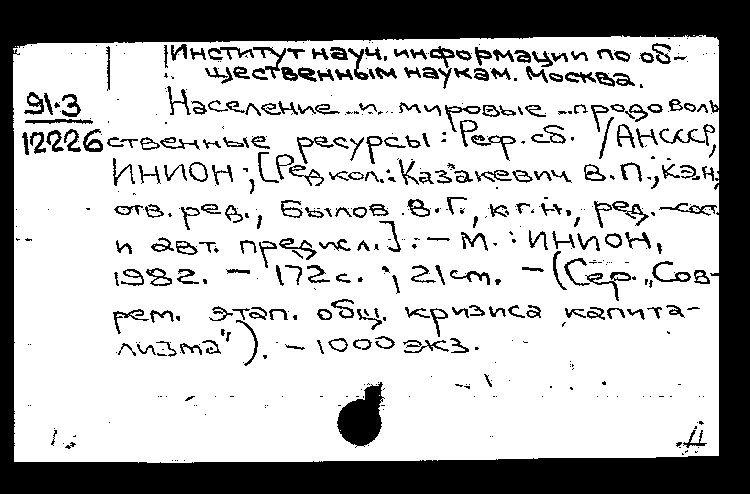 Институт науч. информации по об-
щественным наукам. Москва.
91-3
12226
Население и мировые продоволь
ственные ресурсы: Реф. сб. /АНСССР,
ИНИОН; [Редкол.: Казакевич В.П., к.э.н.,
отв. ред., Былов В.Г., к.г.н., ред.-сост.
и авт. предисл.]. — М.: ИНИОН,
1982. — 172 с. ; 21 см. — (Сер. „Сов-
рем. этап. общ. кризиса капита-
лизма"). — 1000 экз.